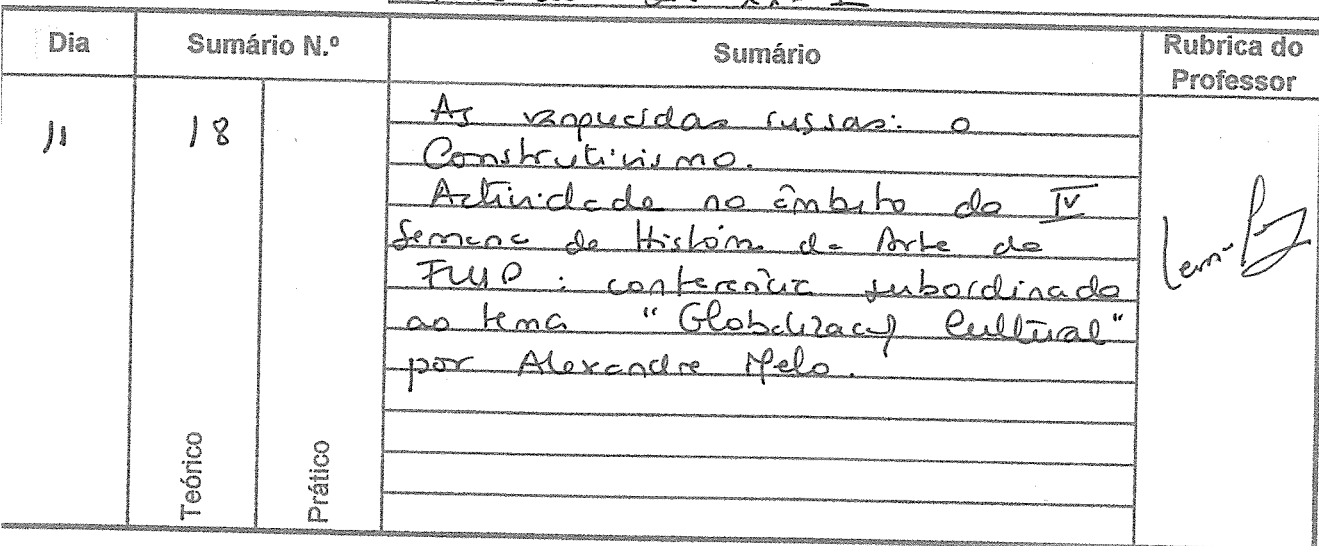 Dia Sumário N.º Sumário Rubrica do Professor
11 18
As vanguardas russas: o
Construtivismo.
Actividade no âmbito da IV
Semana de História da Arte da
FLUP : conferência subordinada
ao tema "Globalização Cultural"
por Alexandre Melo.
Teórico
Prático